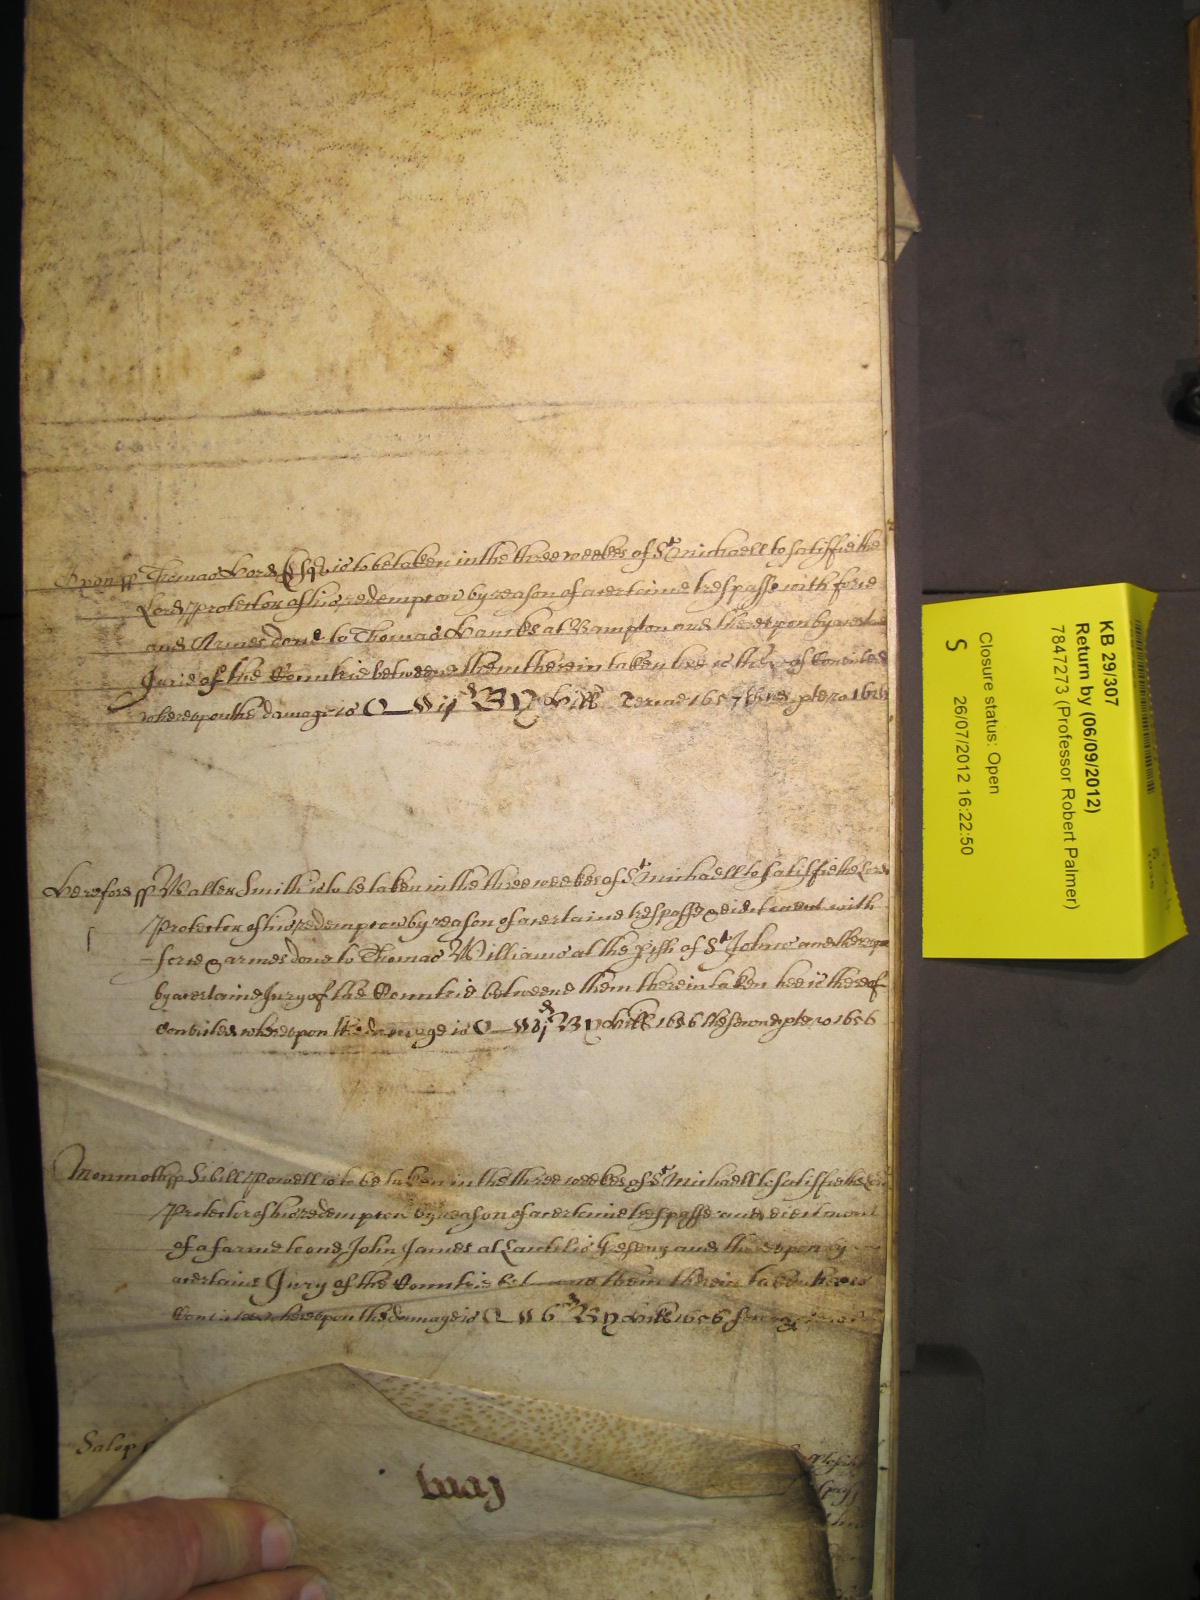 Oxon ss Thomas Hord Esqr is to be taken in the three weekes of St Michaell to satisfie the
Lord protector of his redempcon by reason of a certaine trespasse with force
and Armes done to Thomas Hancks at Bampton and thereupon by a
Jurie of the Countrie betweene them therein taken hee is thereof Convicted
whereupon the damage is Hill Terme 1657
Hereford ss Walter Smith is to be taken in the three weekes of St Michaell to satisfie the Lord
Protector of his redempcon by reason of a certaine trespasse & eiectment with
force & armes done to Thomas Williams at the pish of St Johns and thereupon
by a certaine Jury of the Countrie betweene them therein taken hee is thereof
Convicted whereupon the damage is Hill 1656 the second pte ro 1656
Monmoth ss Sibill Powell is to be taken in the three weekes of St Michaell to satisfie the
Protector of his redempcon by reason of a certaine trespasse and eiectment
of a farme to one John James at and thereupon by
a certaine Jury of the Countrie betweene them therein taken
Convicted whereupon the damage is Hill 1656
Salop
KB 29/307
Return by (06/09/2012)
7847273 (Professor Robert Palmer)
Closure status: Open
S 26/07/2012 16:22:50